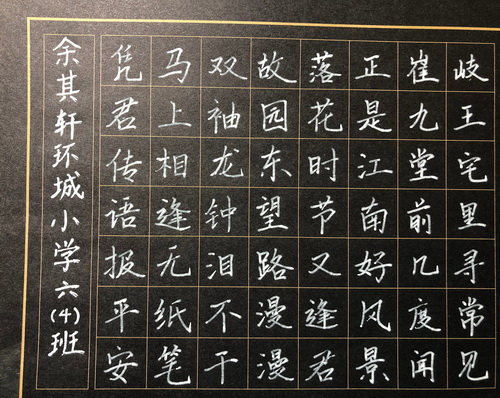 岐王宅里寻常见
崔九堂前几度闻
正是江南好风景
落花时节又逢君
故园东望路漫漫
双袖龙钟泪不干
马上相逢无纸笔
凭君传语报平安
余其轩环城小学六(4)班